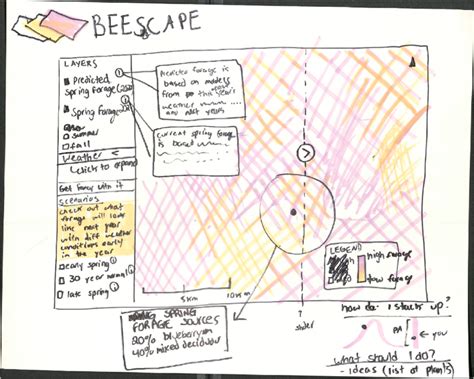 BEESCAPE
LAYERS
Predicted
spring forage (250
Spring forage
summer
fall
Weather <
click to expand
Get fancy with it
scenarios
check out what
forage will look
like next year
with diff weather
conditions early
in the year
early spring
30 year normal
late spring
Predicted forage is
based on models
from this year's
weather
and past years
current spring forage
is based
5km
10km
LEGEND
high forage
low forage
?
slider
SPRING
FORAGE SOURCES
20% blueberry
40% mixed deciduous
how do I stack up?
PA
you
what should I do?
- ideas (list of plants)